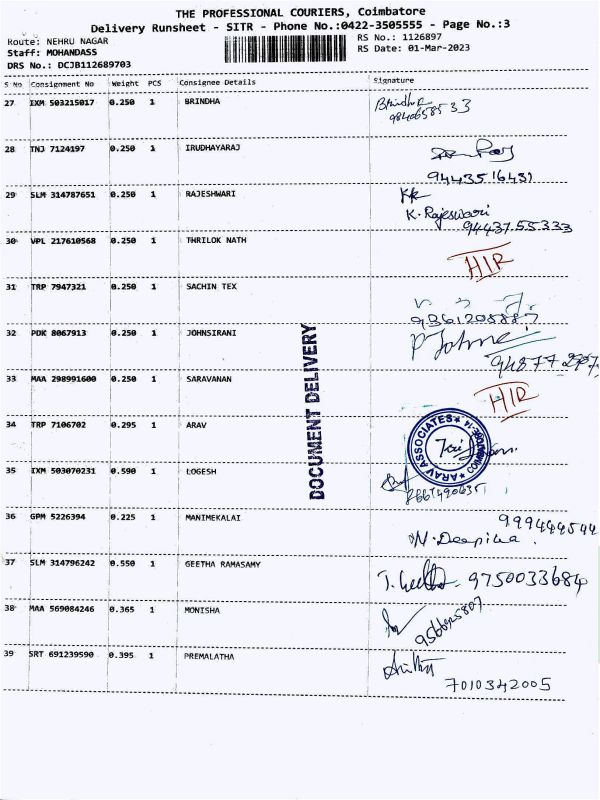 THE PROFESSIONAL COURIERS, Coimbatore
Delivery Runsheet - SITR - Phone No.:0422-3505555 - Page No.:3
Route: NEHRU NAGAR
RS No.: 1126897
Staff: MOHANDASS
RS Date: 01-Mar-2023
DRS No.: DCJB112689703
S No Consignment No Weight PCS Consignee Details Signature
27 IXM 503215017 0.250 1 BRINDHA
28 TNJ 7124197 0.250 1 IRUDHAYARAJ
9443516431
29 SLM 314787651 0.250 1 RAJESHWARI
K. Rajeswari
94437.55333
30 VPL 217610568 0.250 1 THRILOK NATH
HIR
31 TRP 7947321 0.250 1 SACHIN TEX
32 PDK 8067913 0.250 1 JOHNSIRANI
33 MAA 298991600 0.250 1 SARAVANAN
HIR
34 TRP 7106702 0.295 1 ARAV
ARAV ASSOCIATES
35 IXM 503070231 0.590 1 LOGESH
36 GPM 5226394 0.225 1 MANIMEKALAI
999444544
37 SLM 314796242 0.550 1 GEETHA RAMASAMY
9750033684
38 MAA 569084246 0.365 1 MONISHA
39 SRT 691239590 0.395 1 PREMALATHA
7010342005
DOCUMENT DELIVERY